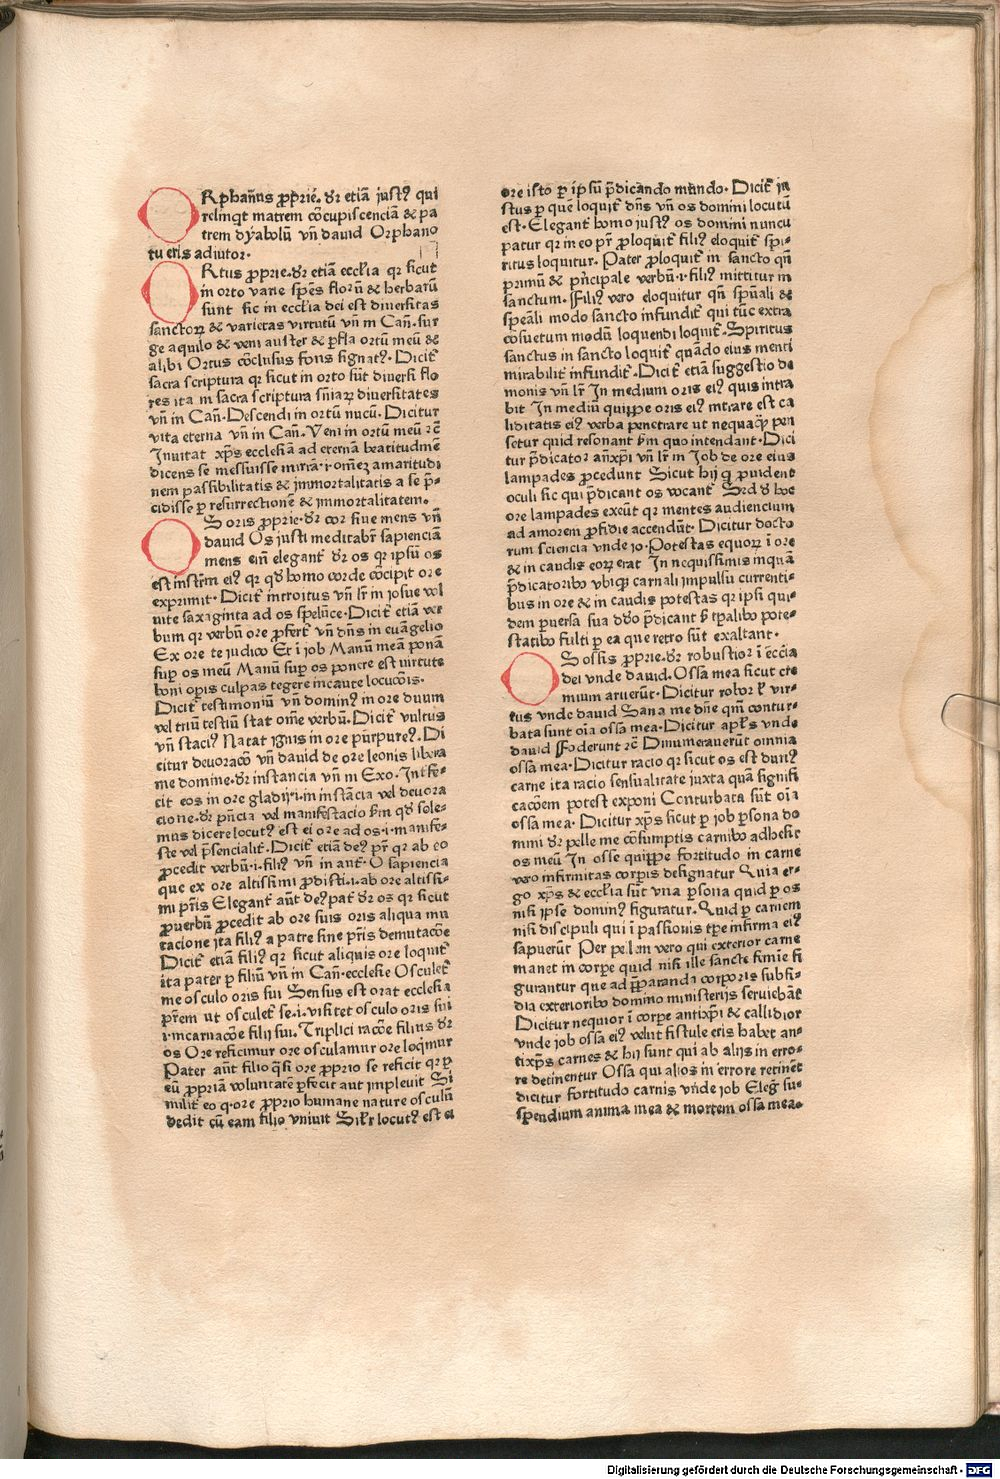 ORphan9 ꝓprie. dr̄ etiā iust9 qui
relinqt matrem cōcupiscenciā & pa
trem dyabolū vn̄ david Orphano
tu eris adiutor.
ORtus ꝓprie. dr̄ etiā eccl'ia qr sicut
in orto varie sp̄es florū & herbarū
sunt sic in eccl'ia dei est diversitas
sanctoꝝ & varietas virtutū vn̄ in Can̄. sur
ge aquilo & veni auster & ꝑfla ortū meū &
alibi Ortus cōclusus fons signat9. Dicit̄
sacra scriptura qr sicut in orto sūt diversi flo
res ita in sacra scriptura sn̄iaꝝ diversitates
vn̄ in Can̄. Descendi in ortū nucū. Dicitur
vita eterna vn̄ in Can̄. Veni in ortū meū ⁊c̄
Invitat xp̄s ecclesiā ad eternā beatitudinē
dicens se messuisse mirrā. i. omēꝫ amaritudi
nem passibilitatis & immortalitatis a se p̄-
cidisse ꝑ resurrectionē & immortalitatem.
OS oris ꝓprie. dr̄ cor sive mens vn̄
david Os justi meditabit̄ sapienciā
mens eni elegant̄ dr̄ os qr ipsū os
est instr̄m ei9 qr qd̄ homo corde cōcipit ore
exprimit. Dicit̄ introitus vn̄ lr̄ in josue vol
vite saxa ingintia ad os spelūce. Dicit̄ etiā ver
bum qr verbū ore ꝓfert̄ vn̄ dn̄s in evāgelio
Ex ore te judico Et ī job Manū meā ponā
suꝑ os meū Manū suꝑ os ponere est virtute
boni oꝑis culpas tegere incaute locucōis.
Dicit̄ testimoniū vn̄ domin9 in ore duum
vel triū testiū stat om̄e verbū. Dicit̄ vultus
vn̄ staci9 Natat ignis in ore purpure9. Di
citur devoracō vn̄ david de ore leonis libera
me domine. dr̄ instancia vn̄ in Exo. Intfe-
cit eos in ore gladij. i. in instācia vel devora
cione. dr̄ p̄ncia vel manifestacio sm̄ qd̄ sole-
mus dicere locut9 est ei ore ad os. i. manife-
ste vel p̄sencialit̄. Dicit̄ etiā de9 pr̄ qr ab eo
ꝓcedit verbū. i. fili9 vn̄ in ant̄. O sapiencia
que ex ore altissimi ꝓdisti. i. ab ore altissi-
mi pr̄is Elegant̄ aūt de9 pat̄ dr̄ os qr sicut
ꝓverbū ꝓcedit ab ore suis oris aliqua mu
tacione ita fili9 a patre sine pr̄is demutacōe
Dicit̄ etiā fili9 qr sicut aliquis ore loquit̄
ita pater ꝑ filiū vn̄ in Can̄. ecclesie Osculet̄
me osculo oris sui Sensus est orat ecclesia
pr̄em ut osculet̄ se. i. visitet osculo oris sui
i. incarnacōe filij sui. Triplici racōe filius dr̄
os Ore reficimur ore osculamur ore loqimur
Pater aūt filio q̄si ore ꝓprio se reficit qr ꝑ
eū ꝓpriā voluntatē ꝑfecit aut implevit Si
milit̄ eo q. ore ꝓprio humane nature osculū
dedit cū eam filio vniuit Sil'r locut9 est ei
ore isto ꝑ ipsū p̄dicando mūdo. Dicit̄ iu
stus ꝑ quē loquit̄ dn̄s vn̄ os domini locutū
est. Elegant̄ homo just9 os domini nuncu
patur qr in eo pr̄ ꝓloquit̄ fili9 eloquit̄ spi-
ritus loquitur. Pater ꝓloquit̄ in sancto qn̄
primū & p̄ncipale verbū. i. fili9 mittitur in
sanctum. Fili9 vero eloquitur qn̄ sp̄uali &
sp̄eali modo sancto infundit̄ qui tūc extra
cōsuetum modū loquendi loquit̄. Spiritus
sanctus in sancto loquit̄ quādo eius menti
mirabilit̄ infundit̄. Dicit̄ etiā suggestio de
monis vn̄ lr̄ In medium oris ei9 quis intra
bit In mediū quippe oris ei9 intrare est ca
liditatis ei9 verba penetrare ut nequaq̄ꝫ pen
setur quid resonant sm̄ quo intendant. Dici
tur p̄dicator anxp̄i vn̄ lr̄ in Job de ore eius
lampades ꝓcedunt Sicut hij q̄ ꝓvident
oculi sic qui p̄dicant os vocant̄ Srd d̄ hoc
ore lampades exeūt qr mentes audiencium
ad amorem ꝑfidie accendūt. Dicitur docto
rum sciencia vnde io. Potestas equoꝝ ī ore
& in caudis eoꝝ erat In nequissimis inquā
p̄dicatoribo ubiqꝫ carnali impulsu currenti-
bus in ore & in caudis potestas qr ipsi qui-
dem ꝑversa sua dd̄o p̄dicant s̄ tꝑalibo pote-
statibo fulti ꝑ ea que retro sūt exaltant̄.
OS ossis ꝓprie. dr̄ robustior ī ecc̄ia
dei vnde david. Ossa mea sicut cre
mium aruerūt. Dicitur robor s̄ vir-
tus vnde david Sana me dn̄e qm̄ contur-
bata sunt oīa ossa mea. Dicitur apl's vnde
david Foderunt ⁊c̄ Dinumeraverūt omnia
ossa mea. Dicitur racio qr sicut os est duri9
carne ita racio sensualitate juxta quā signifi
cacōem potest exponi Conturbata sūt oīa
ossa mea. Dicitur xp̄s sicut ꝑ job ꝑsona do
mini dr̄ pelle me cōsumptis carnibo adhesit
os meū In osse quippe fortitudo in carne
vero infirmitas corꝑis designatur Quia er-
go xp̄s & eccl'ia sūt vna ꝑsona quid ꝑ os
nisi ipse domin9 figuratur. Quid ꝑ carnem
nisi discipuli qui ī passionis tꝑe infirma ei9
sapuerūt Per pellem vero qui exterior carne
manet in corꝑe quid nisi ille sancte femīe fi
gurantur que ad p̄paranda corporis subsi-
dia exterioribo domino ministerijs serviebāt
Dicitur nequior ī corꝑe antixp̄i & callidior
vnde job ossa ei9 velut fistule eris habet an-
tixp̄s carnes & hij sunt qui ab alijs in erro-
re detinentur Ossa qui alios in errore retinēt
dicitur fortitudo carnis vn̄de job Eleḡ su-
spendium anima mea & mortem ossa mea.
Digitalisierung gefördert durch die Deutsche Forschungsgemeinschaft - DFG